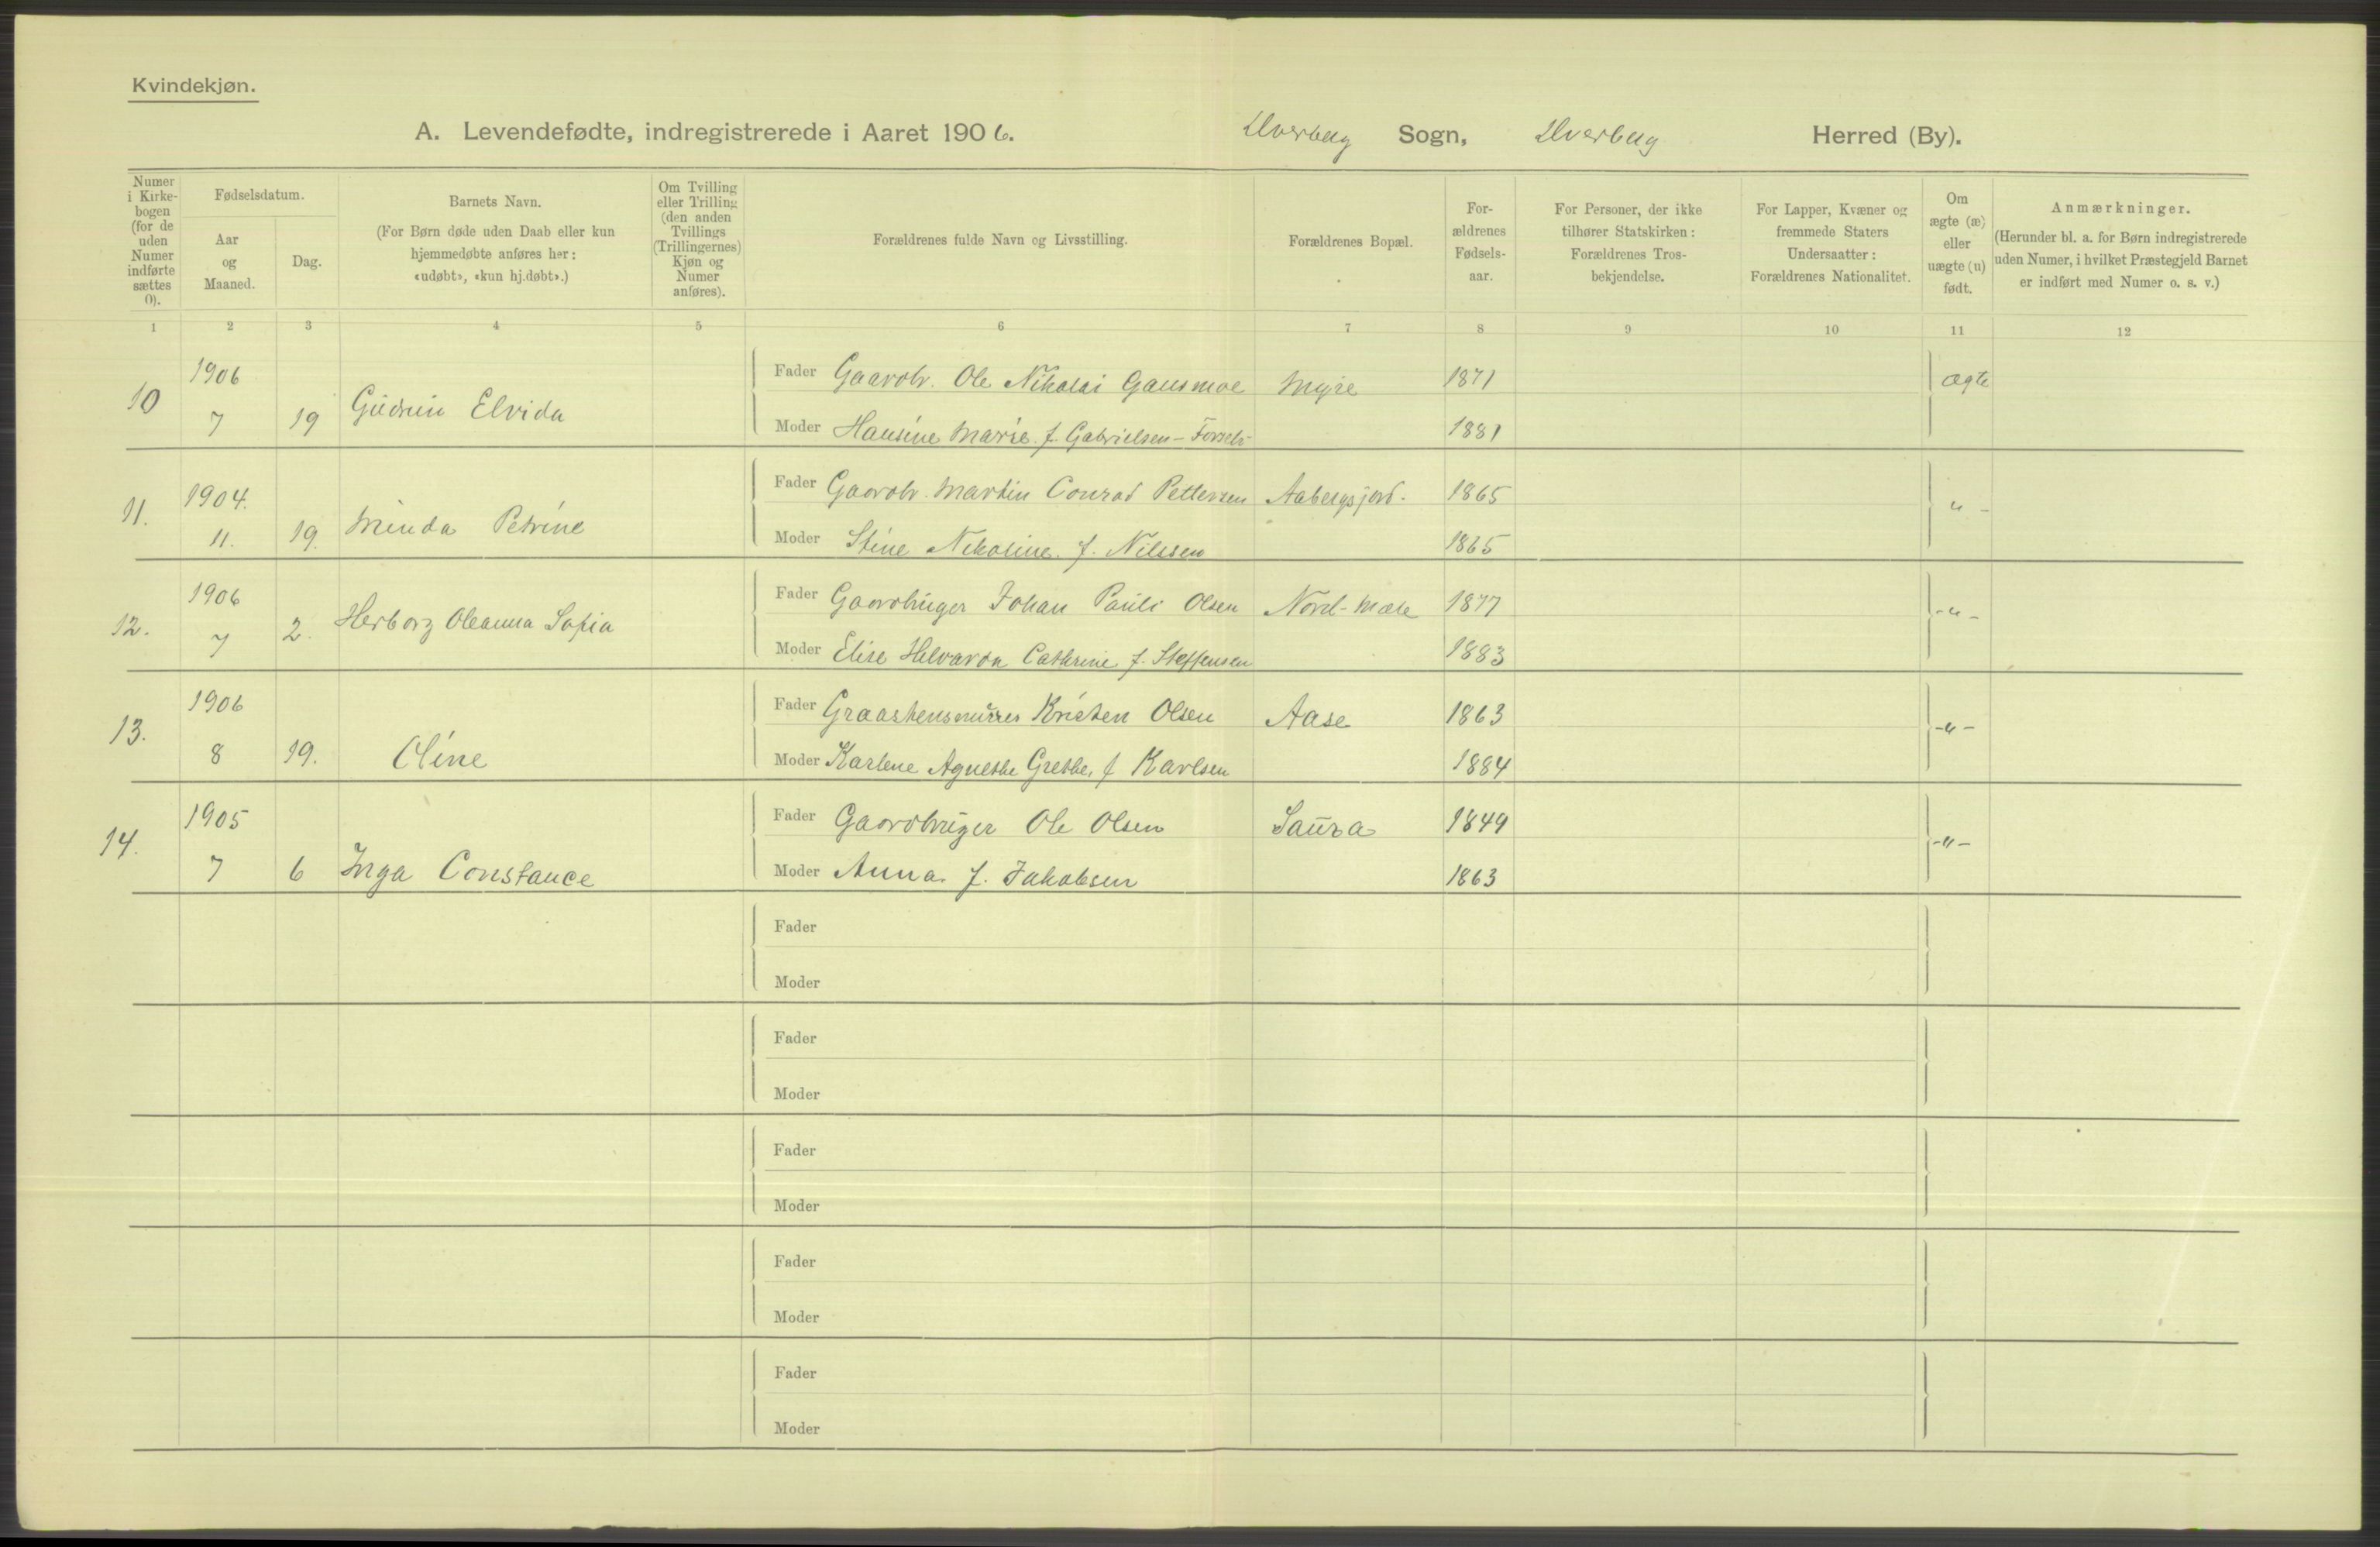 Kvindekjøn.
A. Levendefødte, indregistrerede i Aaret 1906. Dverberg Sogn, Dverberg Herred (By).
Numer i Kirkebogen (for de uden Numer indførte sættes 0).
Fødselsdatum.
Aar og Maaned.
Dag.
Barnets Navn.
(For Børn døde uden Daab eller kun
hjemmedøbte anføres her:
«udøbt», «kun hj.døbt».)
Om Tvilling
eller Trilling
(den anden
Tvillings
(Trillingernes)
Kjøn og
Numer
anføres).
Forældrenes fulde Navn og Livsstilling.
Forældrenes Bopæl.
For-
ældrenes
Fødsels-
aar.
For Personer, der ikke
tilhører Statskirken:
Forældrenes Tros-
bekjendelse.
For Lapper, Kvæner og
fremmede Staters
Undersaatter:
Forældrenes Nationalitet.
Om
ægte (æ)
eller
uægte (u)
født.
Anmærkninger.
(Herunder bl. a. for Børn indregistrerede
uden Numer, i hvilket Præstegjeld Barnet
er indført med Numer o. s. v.)
1 2 3 4 5 6 7 8 9 10 11 12
1906 Fader Gaardbr. Ole Nikolai Gausmoe Myre 1871 ægte
10 7 19 Gudrun Elvida
Moder Hansine Marie f. Gabrielsen - 1881
1904. Fader Gaardbr. Martin Conrad Pettersen Aabergsjord. 1865 " -
11. 11. 19. Minda Petrine
Moder Stine Nikoline f. Nilssen 1865
1906 Fader Gaardbruger Johan Pauli Olsen Nord-Mæle 1877 -"-
12. 7 2. Herborg Oleanna Sofia
Moder Elise Helvarda Cathrine f. Steffensen 1883
1906 Fader Graastensmurer Kristen Olsen Aase 1863 -"-
13. 8 19. Oline
Moder Karlene Agnethe Grethe, f Karlsen 1884
1905 Fader Gaardbruger Ole Olsen Saura 1849 -"-
14. 7 6 Inga Constance
Moder Anna f. Jakobsen 1863
Fader
Moder
Fader
Moder
Fader
Moder
Fader
Moder
Fader
Moder